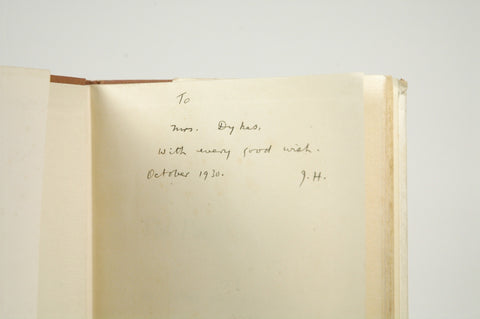 To
Mrs. Dykes,
With every good wish.
October 1930. J.H.